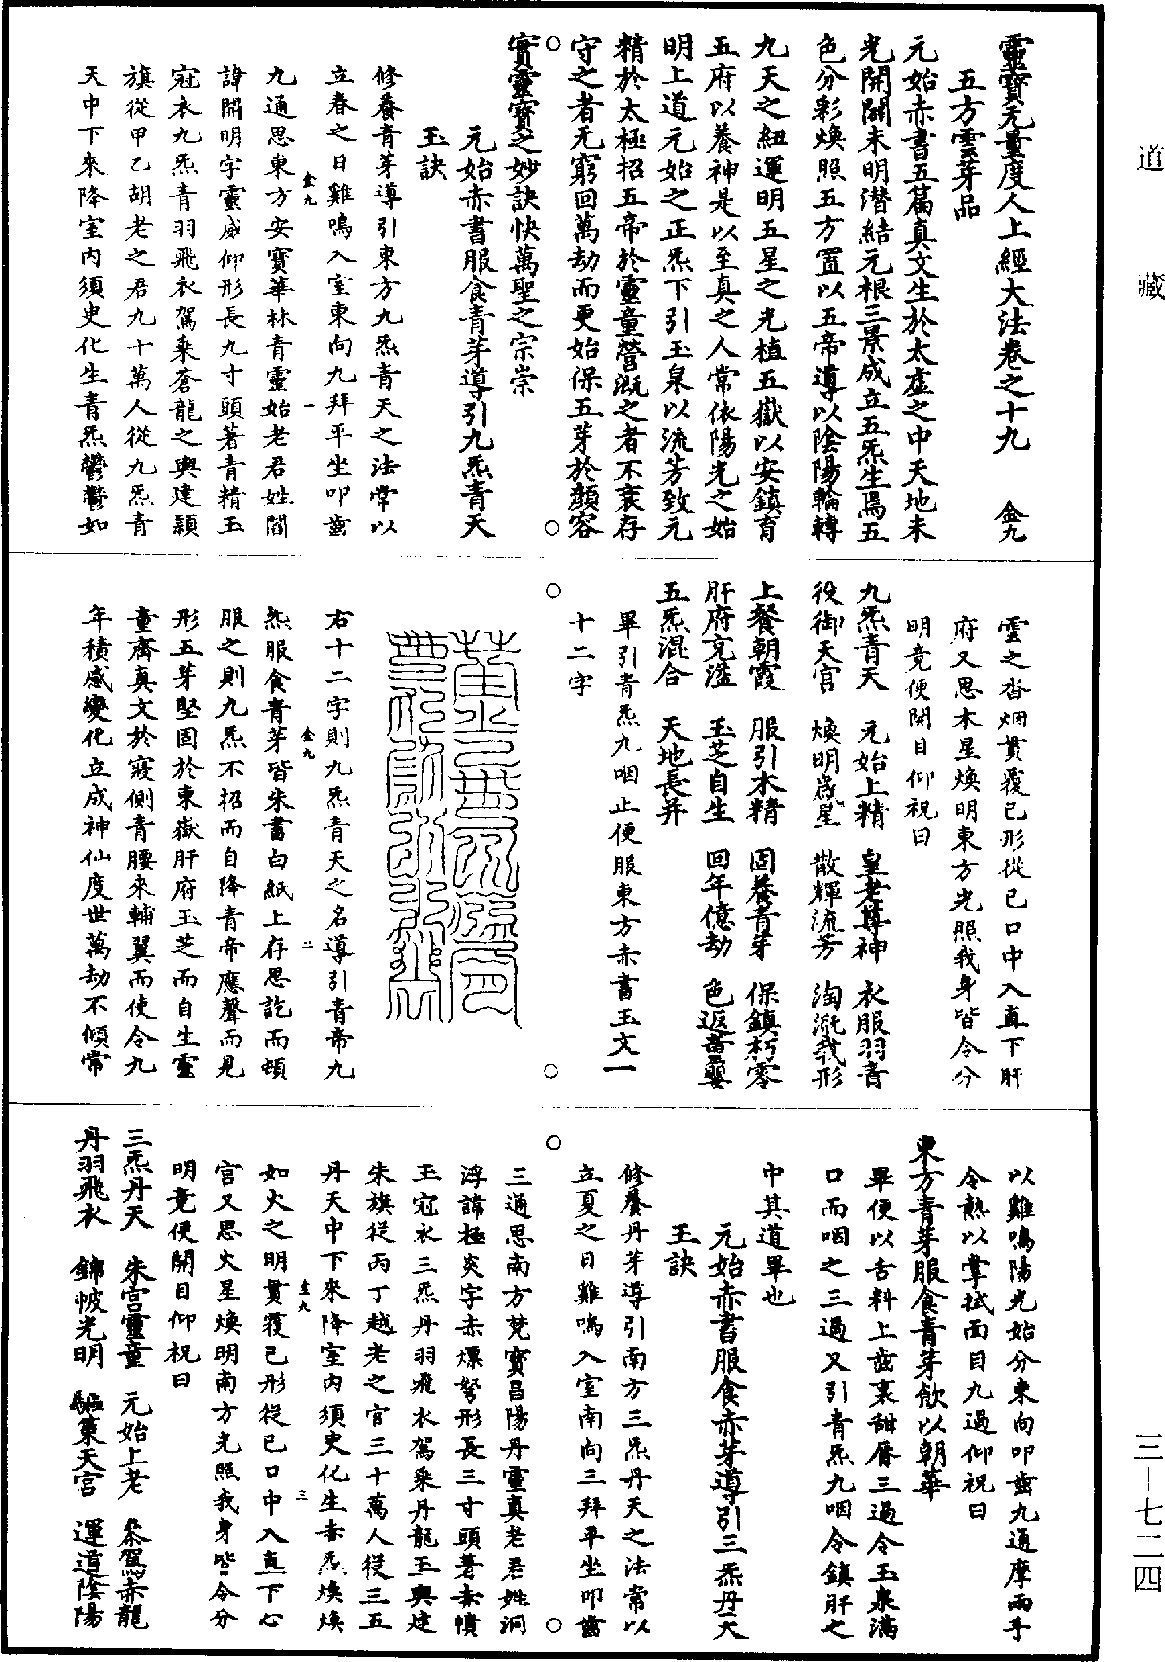 道藏
三—七二四
靈寶无量度人上經大法卷之十九　金九
五方雲芽品
元始赤書五篇真文生於太虛之中天地未
光開闢未明潛結元根三景成立五炁生焉五
色分彩煥照五方置以五帝導以陰陽輪轉
九天之紐運明五星之光植五嶽以安鎮育
五府以養神是以至真之人常依陽光之始
明上道元始之正炁下引玉泉以流芳致元
精於太極招五帝於靈童營溉之者不衰存
守之者无窮回萬劫而更始保五芽於顏容
實靈寶之妙訣快萬聖之宗崇
元始赤書服食青芽導引九炁青天
玉訣
修養青芽導引東方九炁青天之法常以
立春之日雞鳴入室東向九拜平坐叩齒
九通思東方安寶華林青靈始老君姓閻
金九　一
諱開明字靈威仰形長九寸頭著青精玉
冠衣九炁青羽飛衣駕乘蒼龍之輿建鶉
旗從甲乙胡老之君九十萬人從九炁青
天中下來降室內須臾化生青炁鬱鬱如
雲之沓烟貫覆己形從己口中入直下肝
府又思木星煥明東方光照我身皆令分
明竟便開目仰祝曰
九炁青天　元始上精　皇老尊神　衣服羽青
役御天官　煥明歲星　散輝流芳　淘溉我形
上餐朝霞　服引木精　固養青芽　保鎮朽零
肝府充溢　玉芝自生　回年億劫　色返童嬰
五炁混合　天地長并
畢引青炁九咽止便服東方赤書玉文一
十二字
右十二字則九炁青天之名導引青帝九
炁服食青芽皆朱書白紙上存思訖而頓
金九　二
服之則九炁不招而自降青帝應聲而見
形五芽堅固於東嶽肝府玉芝而自生靈
童齎真文於寢側青腰來輔翼而使令九
年積感變化立成神仙度世萬劫不傾常
以雞鳴陽光始分東向叩齒九通摩兩手
令熱以掌拭面目九過仰祝曰
東方青芽服食青芽飲以朝華
畢便以舌料上齒表䑛脣三過令玉泉滿
口而咽之三過又引青炁九咽令鎮肝之
中其道畢也
元始赤書服食赤芽導引三炁丹天
玉訣
修養丹芽導引南方三炁丹天之法常以
立夏之日雞鳴入室南向三拜平坐叩齒
三通思南方梵寶昌陽丹靈真老君姓洞
浮諱極炎字赤熛弩形長三寸頭著赤幘
玉冠衣三炁丹羽飛衣駕乘丹龍玉輿建
朱旗從丙丁越老之官三十萬人從三五
丹天中下來降室內須臾化生赤炁煥煥
金九　三
如火之明貫覆己形從己口中入直下心
宮又思火星煥明南方光照我身皆令分
明竟便開目仰祝曰
三炁丹天　朱宮靈童　元始上老　參駕赤龍
丹羽飛衣　錦帔光明　驅策天宮　運道陰陽